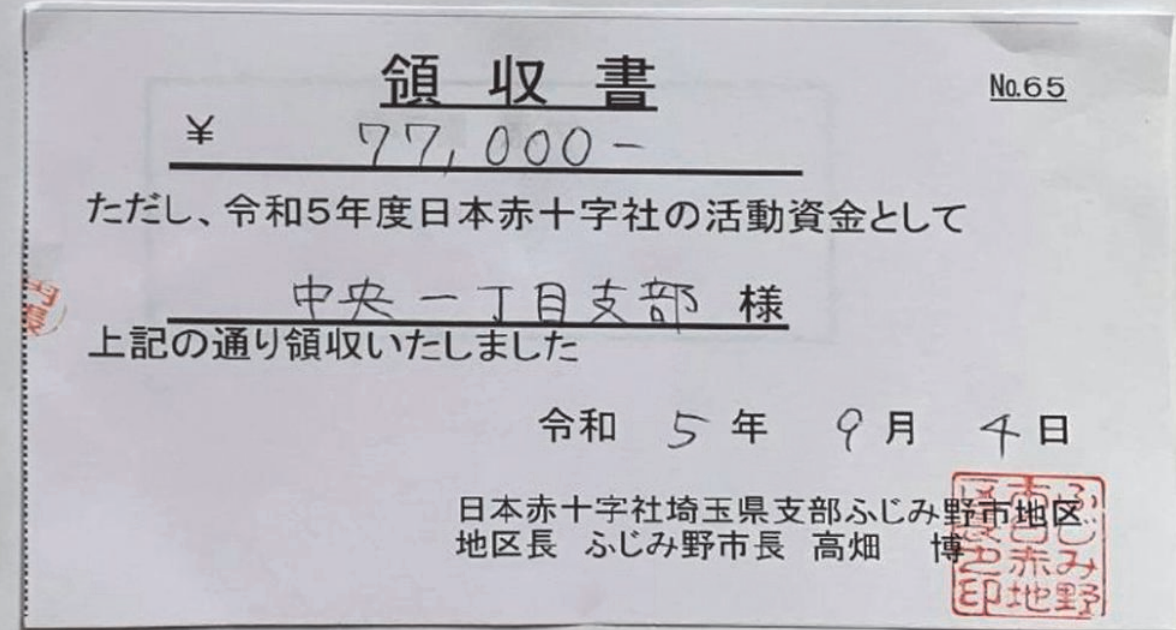 領収書
No.65
¥ 77,000-
ただし、令和5年度日本赤十字社の活動資金として
中央一丁目支部 様
上記の通り領収いたしました
令和 5 年 9 月 4 日
日本赤十字社埼玉県支部ふじみ野市地区
地区長 ふじみ野市長 高畑 博